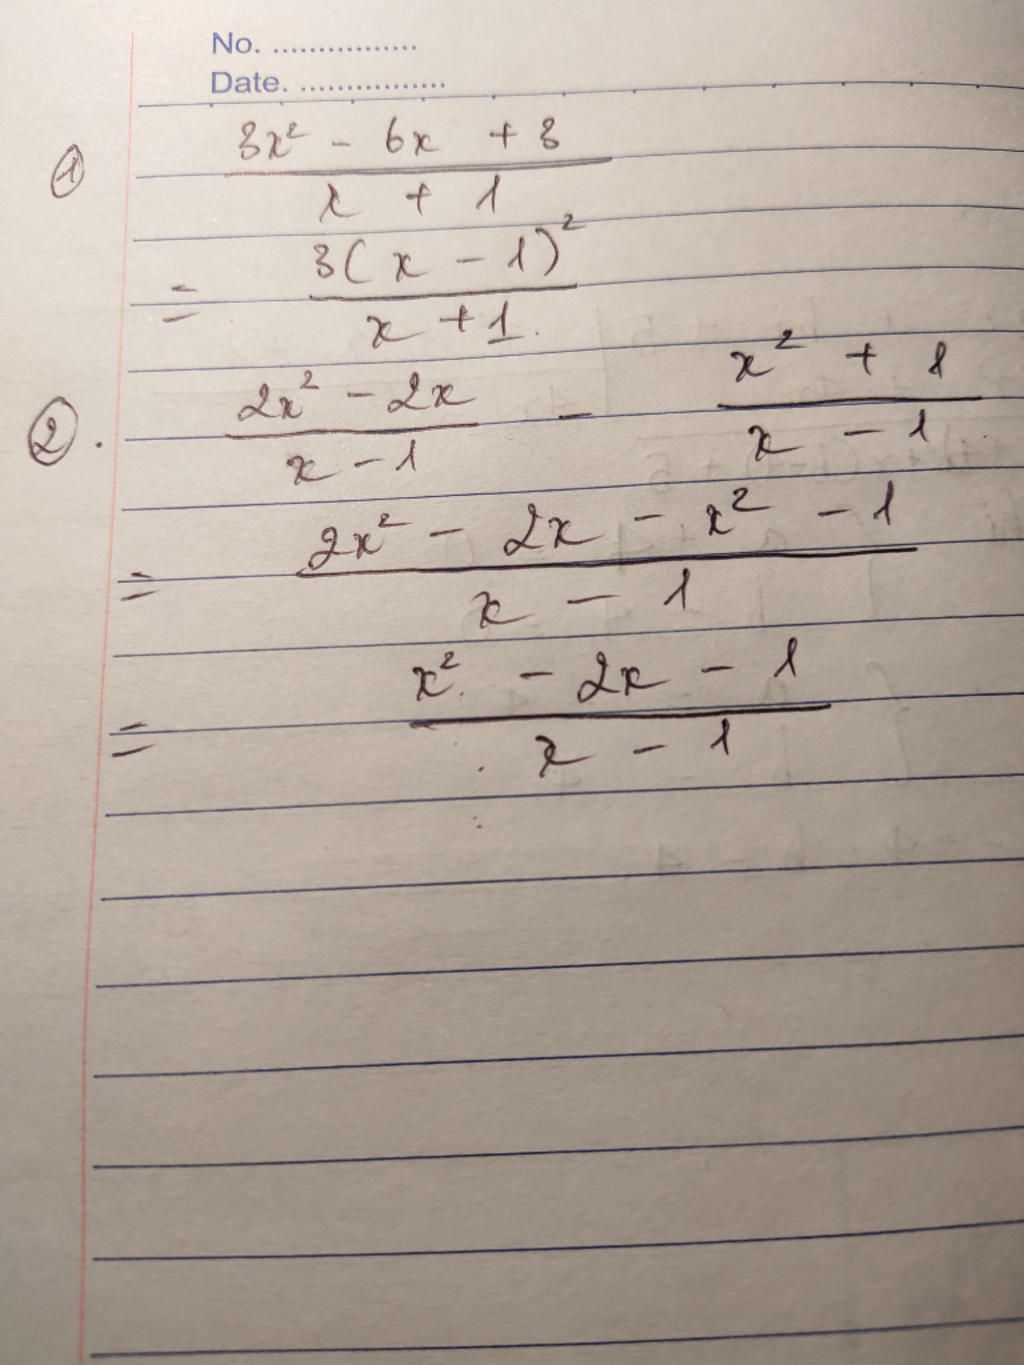 No. ................
Date. ................
① 3x² - 6x + 3
x + 1
= 3(x - 1)²
x + 1.
②. 2x² - 2x - x² + 1
x - 1 x - 1
= 2x² - 2x - x² - 1
x - 1
= x² - 2x - 1
x - 1